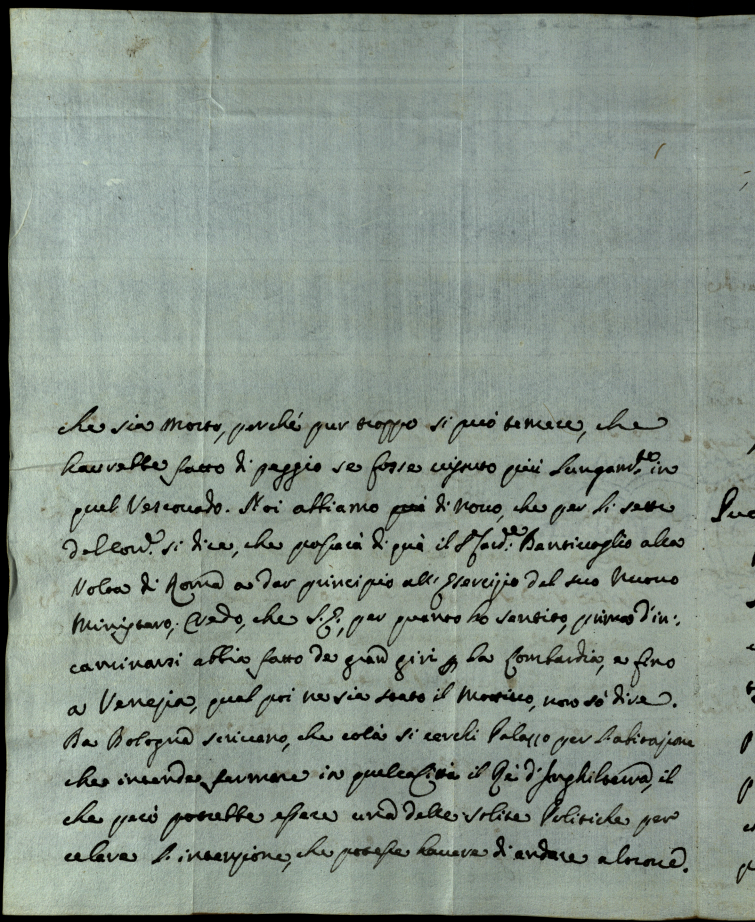 che sia morto, perché pur troppo si può temere, che
haurebbe fatto di peggio se fosse vissuto più lungam.te in
quel Vescovado. Noi abbiamo di nouo, che per li sette
del corr.e si dice, che passarà di quà il S.r Card.le Bentivoglio alla
Volta di Roma a dar principio all'Esercizio del suo nuovo
Ministero; Credo, che S. E., per quanto ho sentito, prima d'in:
caminarsi abbia fatto de gran giri p la Lombardia, e fino
a Venezia, qual poi ne sia stato il Motivo, non sò dire.
Da Bologna scrivano, che colà si cerchi Palazzo per l'abitazione
che intende fermare in quella Città il Rè d'Inghilterra, il
che però potrebbe essere una delle solite Politiche per
celare l'intenzione, che potesse havere di andare altrove.